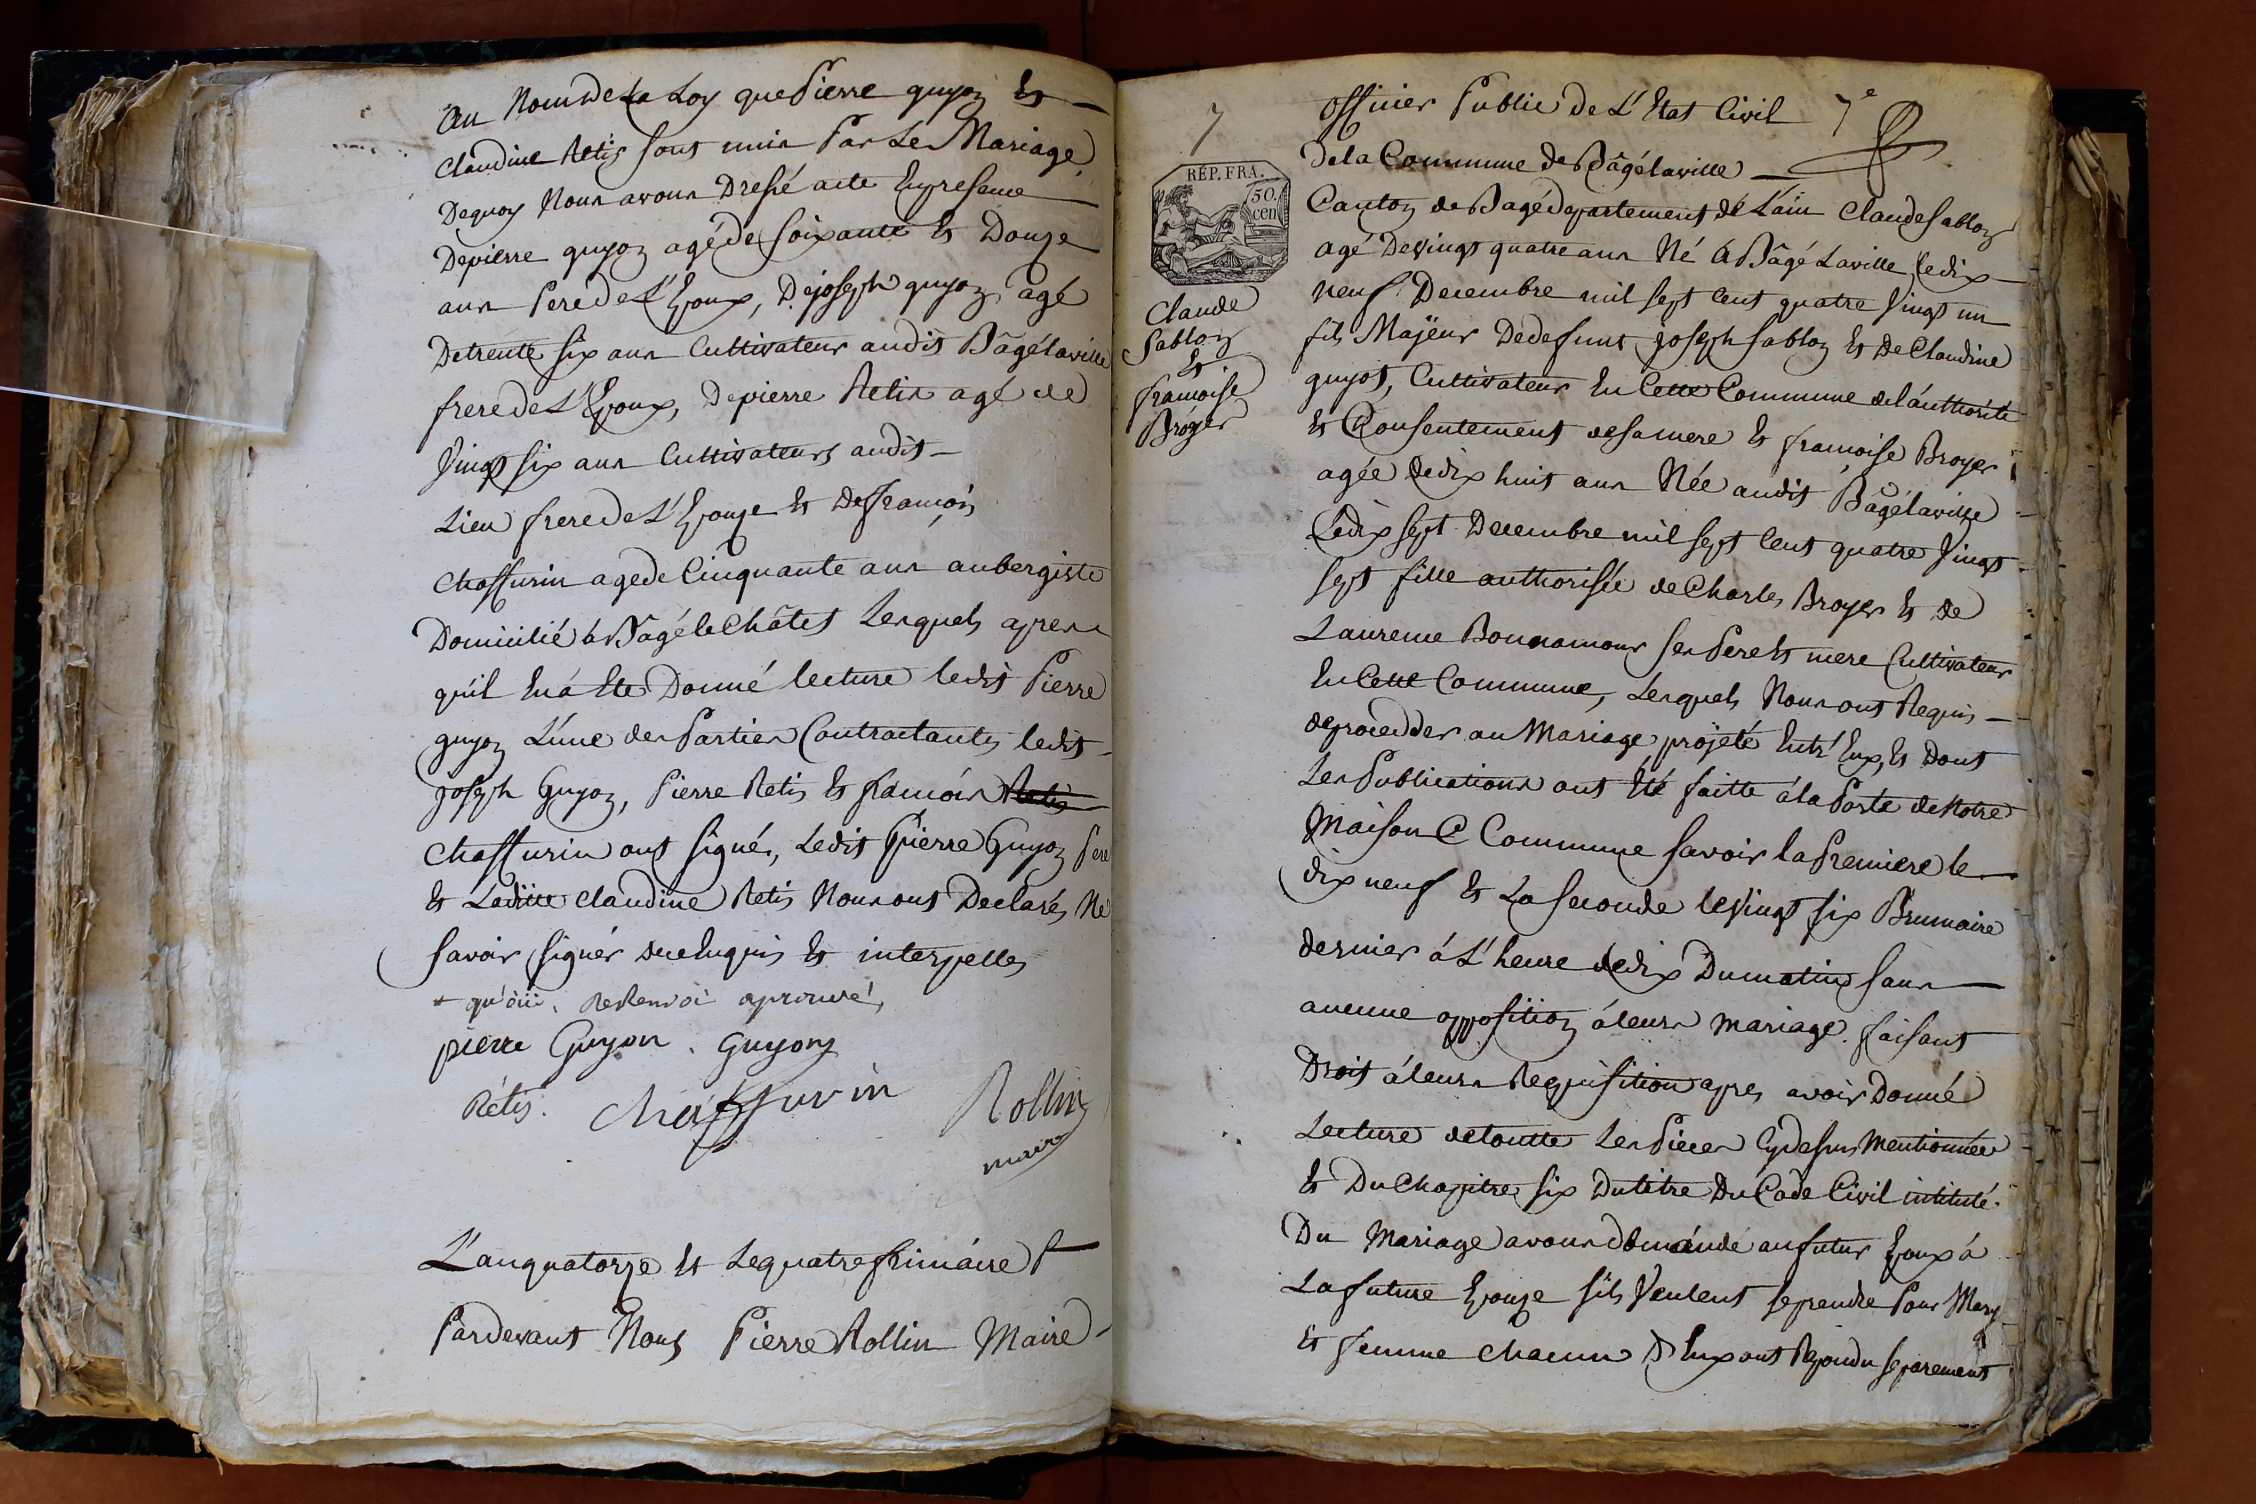 au Nom de La Loy que Pierre guyon Et
Claudine Retis sont unis Par Le Mariage,
Dequoy Nous avons Dressé acte En presence
De pierre guyon agé de soixante Et Douze
ans Pere de L'Epoux, De joseph guyon agé
De trente six ans Cultivateur audit Bâgélaville
frere de L'Epoux, De pierre Retis agé de
Vingt six ans Cultivateurs audit
Lieu frere de L'Epouse Et De françois
Chaffurin agé de Cinquante ans aubergiste
Domicilié à Bâgé le Châtel Lesquels apres
qu'il En a Eté Donné lecture ledit Pierre
guyon L'une des Parties Contractantes ledit
joseph Guyon, Pierre Retis Et françois Retis
Chaffurin ont signés, Ledit Pierre Guyon Pere
Et Laditte Claudine Retis Nous ont Declarés Ne
savoir signér de ce Enquis Et interpellés
Renvoi aprouvé
pierre Guyon. Guyon
Rétis. Chaffurin Rollin
maire
L'an quatorze Et Le quatre frimaire
Pardevant Nous Pierre Rollin Maire
7
RÉP. FRA.
50.
cen
Claude
Sablon
Et
françoise
Broyer
Officier Public De L'Etat Civil 7e
De la Commune de Bâgélaville
Canton de Bagé Departement de L'ain Claude Sablon
agé De Vingt quatre ans Né à Bâgé Laville Le dix
neuf Decembre mil sept Cent quatre Vingt un
fils Majeur De defunt joseph Sablon Et De Claudine
guyot, Cultivateur En Cette Commune de l'authorité
Et Consentement de sa mere Et françoise Broyer
agée De dix huit ans Née audit Bâgélaville
Le dix sept Decembre mil sept Cent quatre Vingt
sept fille authorisée de Charles Broyer Et de
Laurence Bonnamour ses Pere Et mere Cultivateur
En Cette Commune, Lesquels Nous ont Requis
de procedder au Mariage projeté Entr'Eux, Et Dont
Les Publications ont Eté faitte à la Porte de Notre
Maison C Commune Savoir la Premiere le
dix neuf Et La seconde le Vingt six Brumaire
dernier à L'heure de dix Du matin sans
aucune opposition à leurs mariage. faisant
Droit à leurs Requisition apres avoir Donné
Lecture de toutte Les Pieces Cy dessus Mentionnée
Et Du Chapitre six Du titre Du Code Civil intitulé
Du Mariage avons Demandé au futur Epoux à
La future Epouse s'ils Veulent se prendre Pour Mary
Et femme chacun D'Eux ont Repondu separement